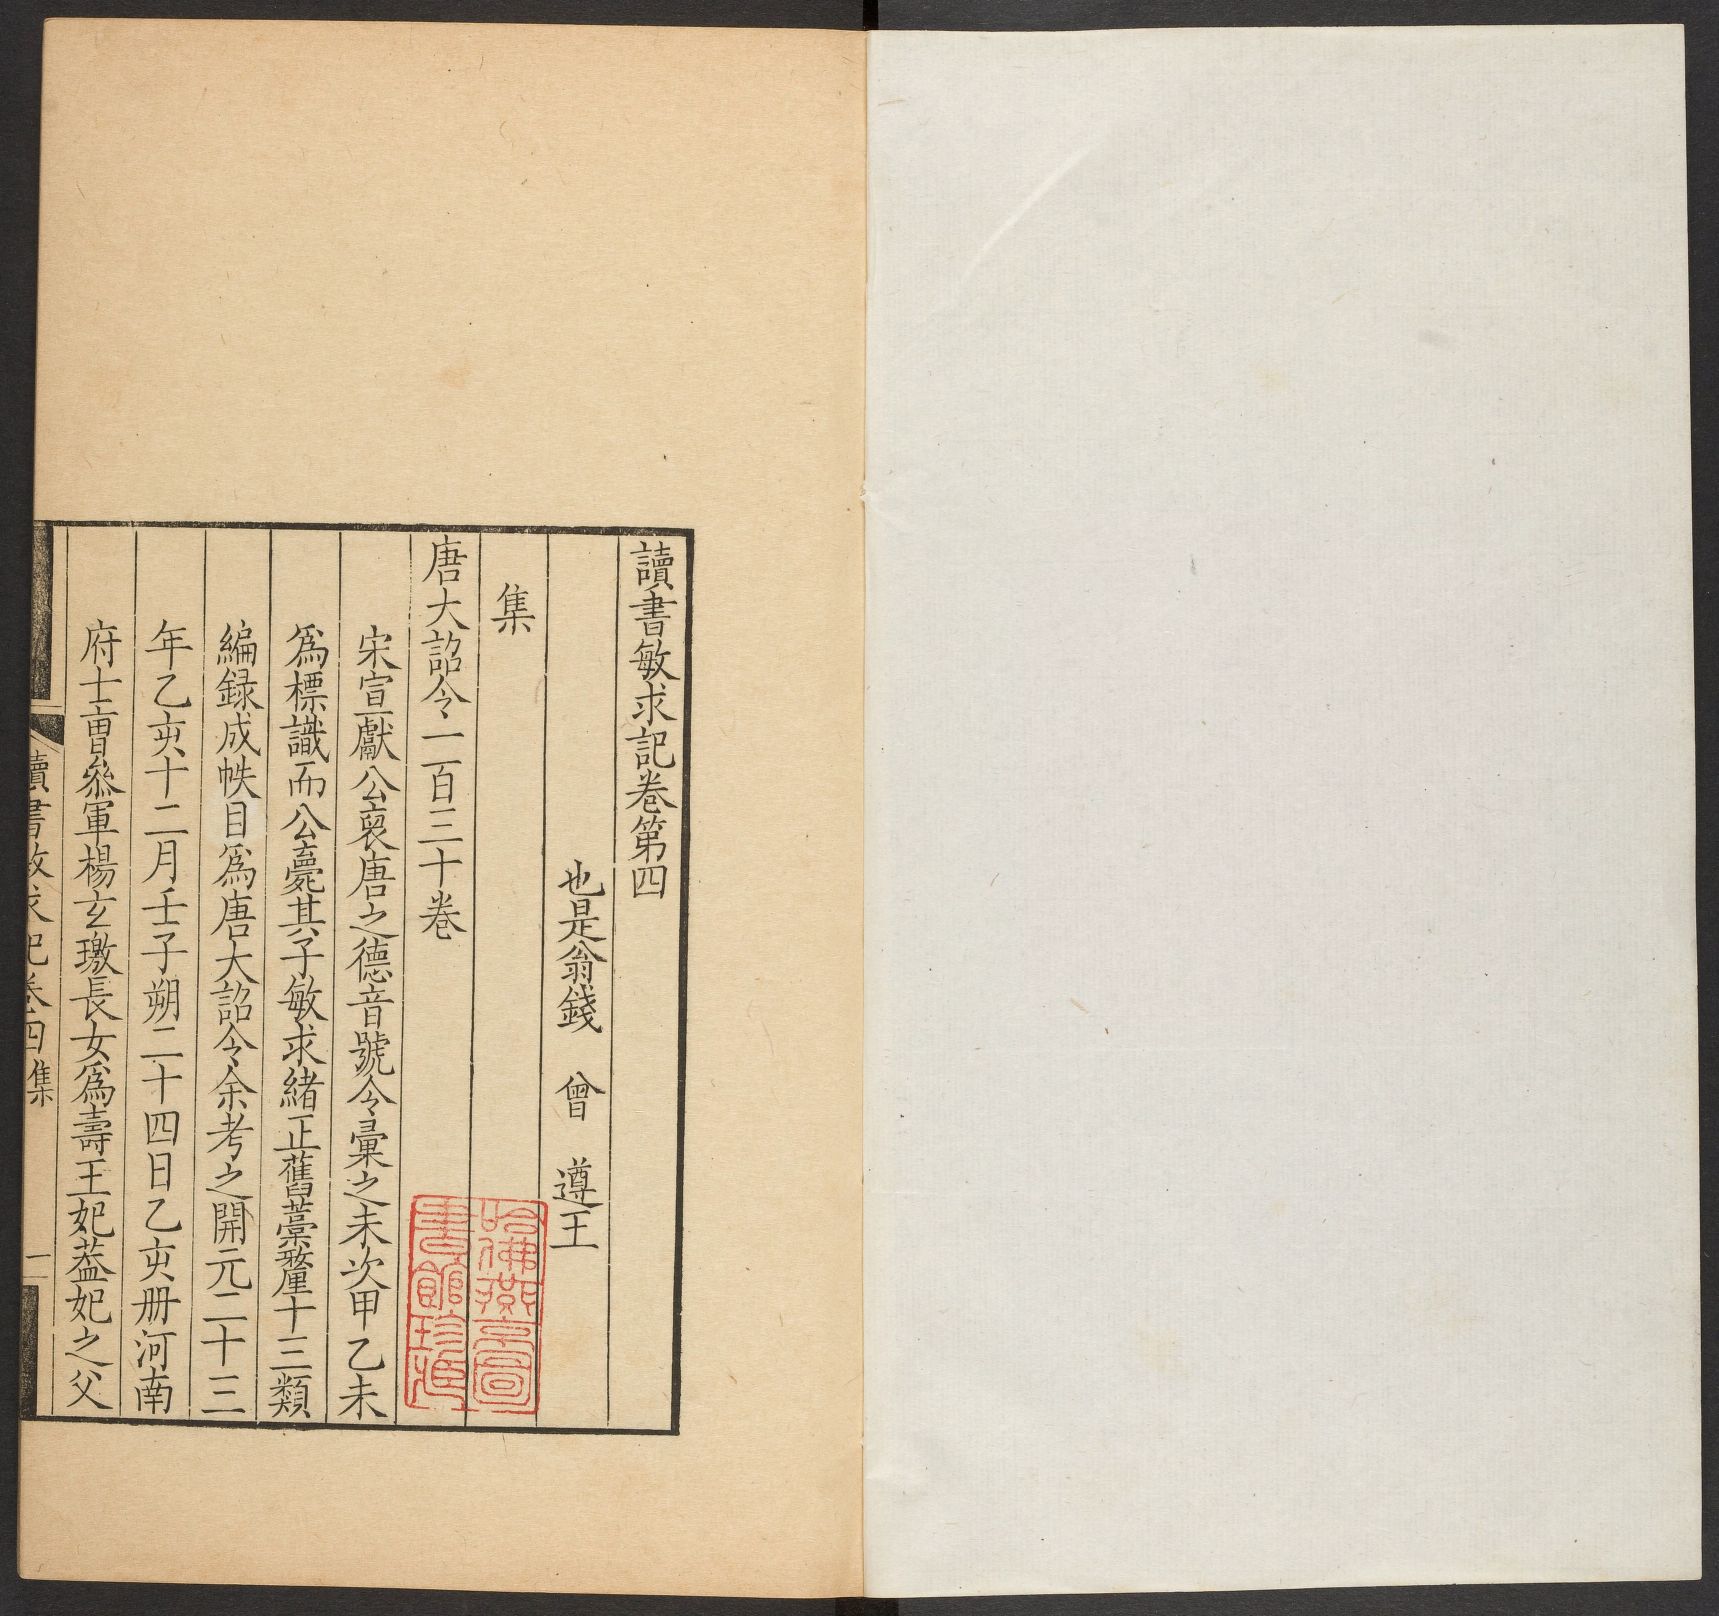 讀書敏求記卷第四
也是翁錢 曾 遵王
集
唐大詔令一百三十卷
宋宣獻公裒唐之德音號令彙之未次甲乙未
爲標識而公薨其子敏求緒正舊藁釐十三類
編録成帙目爲唐大詔令余考之開元二十三
年乙亥十二月壬子朔二十四日乙亥册河南
府士曹叅軍楊玄璬長女爲壽王妃葢妃之父
讀書敏求記卷四集
一
哈佛燕京圖
書館珍藏